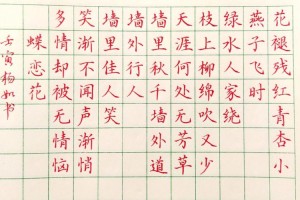 花褪残红青杏小
燕子飞时
绿水人家绕
枝上柳绵吹又少
天涯何处无芳草
墙里秋千墙外道
墙外行人
墙里佳人笑
笑渐不闻声渐悄
多情却被无情恼
蝶恋花
壬寅杨如书